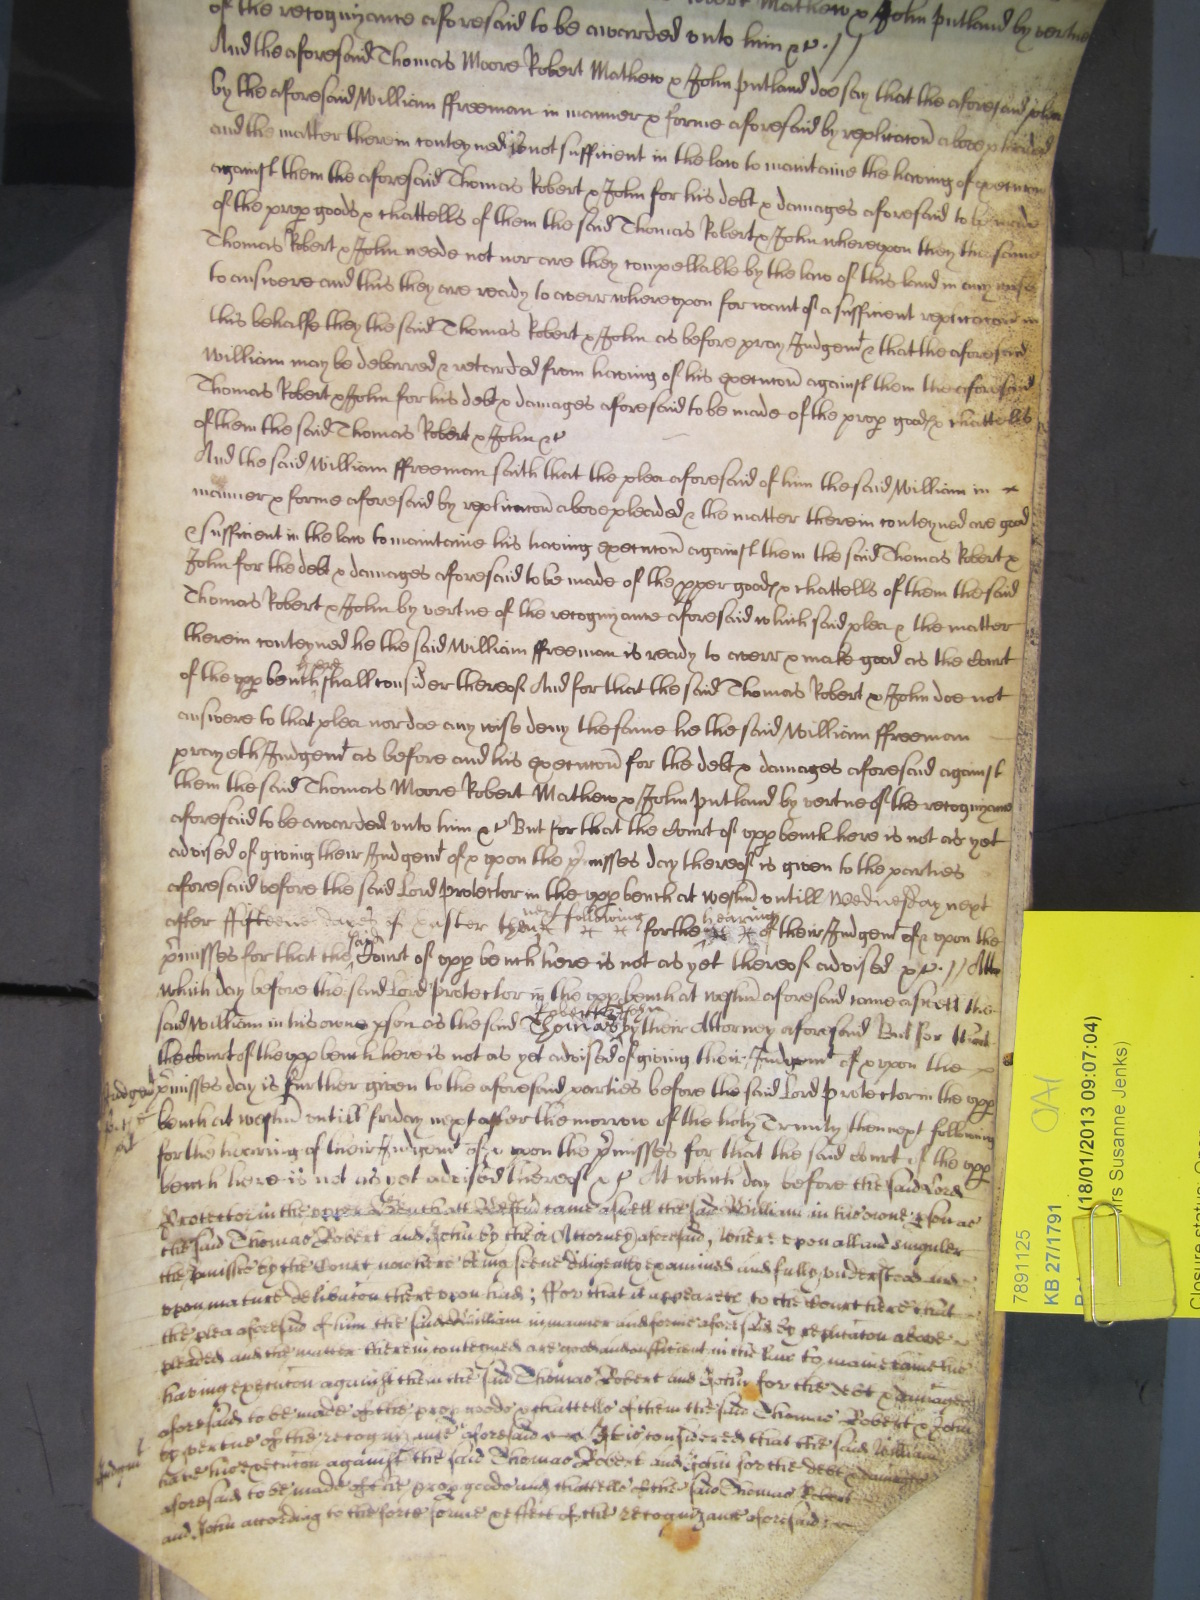 Robert Mathew & John Putland by vertue
of the recognizance aforesaid to be awarded unto him &c. //
And the aforesaid Thomas Moore Robert Mathew & John Putland doe say that the aforesaid plea
by the aforesaid William ffreeman in manner & forme aforesaid by replicacon above pleaded
and the matter therein conteyned is not sufficient in the law to maintaine the having of execucon
against them the aforesaid Thomas Robert & John for his debt & damages aforesaid to be made
of the prop goods & chattells of them the said Thomas Robert & John whereupon they the same
Thomas Robert & John neede not nor are they compellable by the law of this land in any wise
to answere and this they are ready to averr whereupon for want of a sufficient replicacon in
this behalfe they the said Thomas Robert & John as before pray Judgemt & that the aforesaid
William may be debarred & retarded from having of his execucon against them the aforesaid
Thomas Robert & John for his debt & damages aforesaid to be made of the prop goods & chattells
of them the said Thomas Robert & John &c
And the said William ffreeman saith that the plea aforesaid of him the said William in
manner & forme aforesaid by replicacon above pleaded & the matter therein conteyned are good
& sufficient in the law to maintaine his having execucon against them the said Thomas Robert &
John for the debt & damages aforesaid to be made of the pper goods & chattells of them the said
Thomas Robert & John by vertue of the recognizance aforesaid which said plea & the matter
therein conteyned he the said William ffreeman is ready to averr & make good as the Court
of the upp bench here shall consider thereof And for that the said Thomas Robert & John doe not
answere to that plea nor doe any wise deny the same he the said William ffreeman
prayeth Judgemt as before and his execucon for the debt & damages aforesaid against
them the said Thomas Moore Robert Mathew & John Putland by vertue of the recognizance
aforesaid to be awarded unto him &c But for that the Court of upp bench here is not as yet
advised of giving their Judgemt of & upon the pmisses day thereof is given to the parties
aforesaid before the said Lord Protector in the upp bench at Westm untill Wednesday next
after ffifteene dayes of Easter then next following for the hearing of their Judgemt of & upon the
pmisses for that the said Court of upp bench here is not as yet thereof advised &c. // Att
which day before the said Lord Protector in the upp bench at Westm aforesaid came aswell the
said William in his owne pson as the said Thomas Robert & John by their Attorney aforesaid But for that
the Court of the upp bench here is not as yet advised of giving their Judgemt of & upon the
pmisses day is further given to the aforesaid parties before the said Lord Protector in the upp
bench at Westm untill friday next after the morrow of the holy Trinity then next following
for the hearing of their Judgemt of & upon the pmisses for that the said Court of the upp
bench here is not as yet advised thereof &c At which day before the said Lord
Protector in the upper Bench att Westm came aswell the said William in his owne pson as
the said Thomas Robert and John by their Attorney aforesaid, Whereupon all and singuler
the pmisses by the Court now here being seene diligently examined and fully understood and
upon mature deliberacon thereupon had; ffor that it appeareth to the Court here that
the plea aforesaid of him the said William in manner and forme aforesaid by replicacon above
pleaded and the matter therein conteyned are good and sufficient in the Law to maintaine the
having execucon against them the said Thomas Robert and John for the debt & damages
aforesaid to be made of the prop goods & chattells of them the said Thomas Robert & John
by vertue of the recognizance aforesaid It is considered that the said William
have his execucon against the said Thomas Robert and John for the debt & damages
aforesaid to be made of the prop goods and chattells of the said Thomas Robert
and John according to the force forme & effect of the recognizance aforesaid
Judgemt
7891125
KB 27/1791
(18/01/2013 09:07:04)
Mrs Susanne Jenks)
Closure status: Open